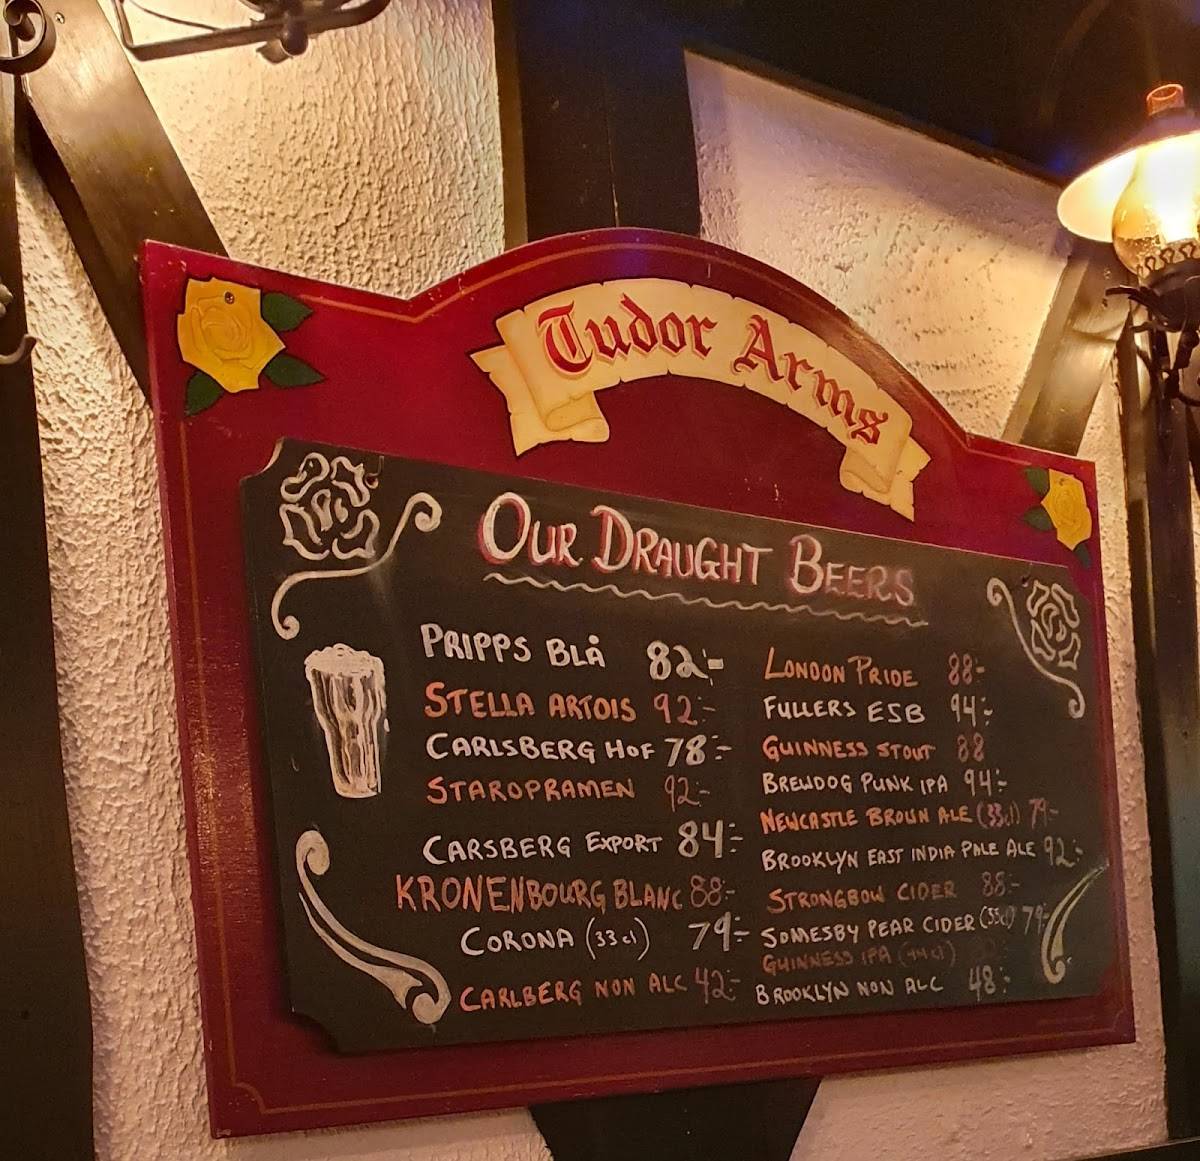 Tudor Arms
OUR DRAUGHT BEERS
PRIPPS BLÅ 82:-
STELLA ARTOIS 92:-
CARLSBERG HOF 78:-
STAROPRAMEN 92:-
CARSBERG EXPORT 84:-
KRONENBOURG BLANC 88:-
CORONA (33cl) 79:-
CARLBERG NON ALC 42:-
LONDON PRIDE 88:-
FULLERS ESB 94:-
GUINNESS STOUT 88
BREWDOG PUNK IPA 94:-
NEWCASTLE BROWN ALE (33cl) 79:-
BROOKLYN EAST INDIA PALE ALE 92:-
STRONGBOW CIDER 88:-
SOMESBY PEAR CIDER (33cl) 79:-
GUINNESS IPA (44cl)
BROOKLYN NON ALC 48:-